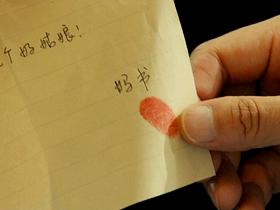 个好姑娘!
妈书